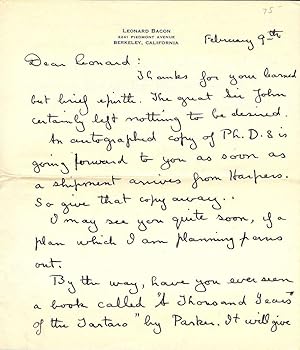 75
LEONARD BACON
2221 PIEDMONT AVENUE
BERKELEY, CALIFORNIA
February 9th
Dear Leonard:
Thanks for your learned
but brief epistle. The great Sir John
certainly left nothing to be desired.
An autographed copy of Ph.D.s is
going forward to you as soon as
a shipment arrives from Harpers.
So give that copy away..
I may see you quite soon, if a
plan which I am planning pans
out.
By the way, have you ever seen
a book called "A Thousand Years
of the Tartars" by Parker. It will give